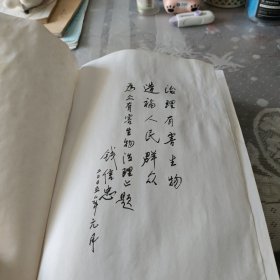 治理有害生物
造福人民群众
为《有害生物治理》题
钱信忠
二〇〇五年元月